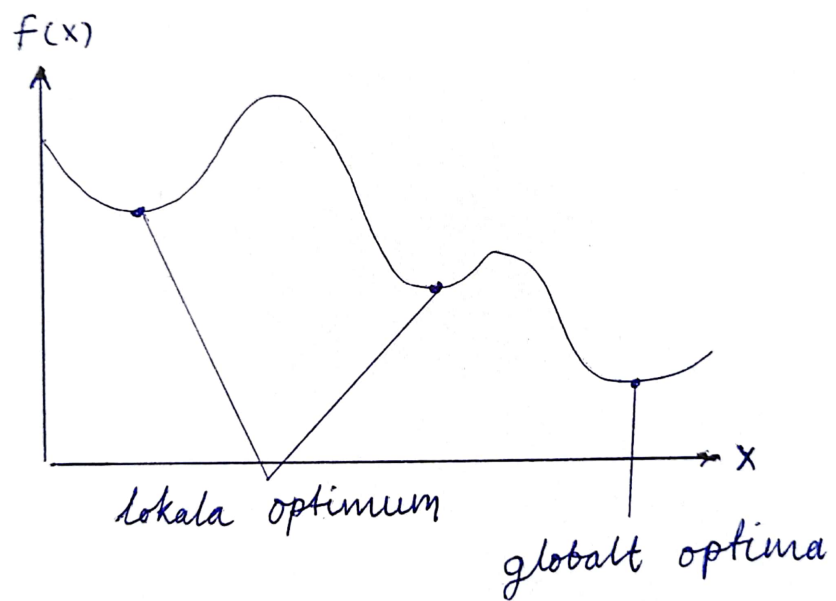 f(x)
x
lokala optimum
globalt optima